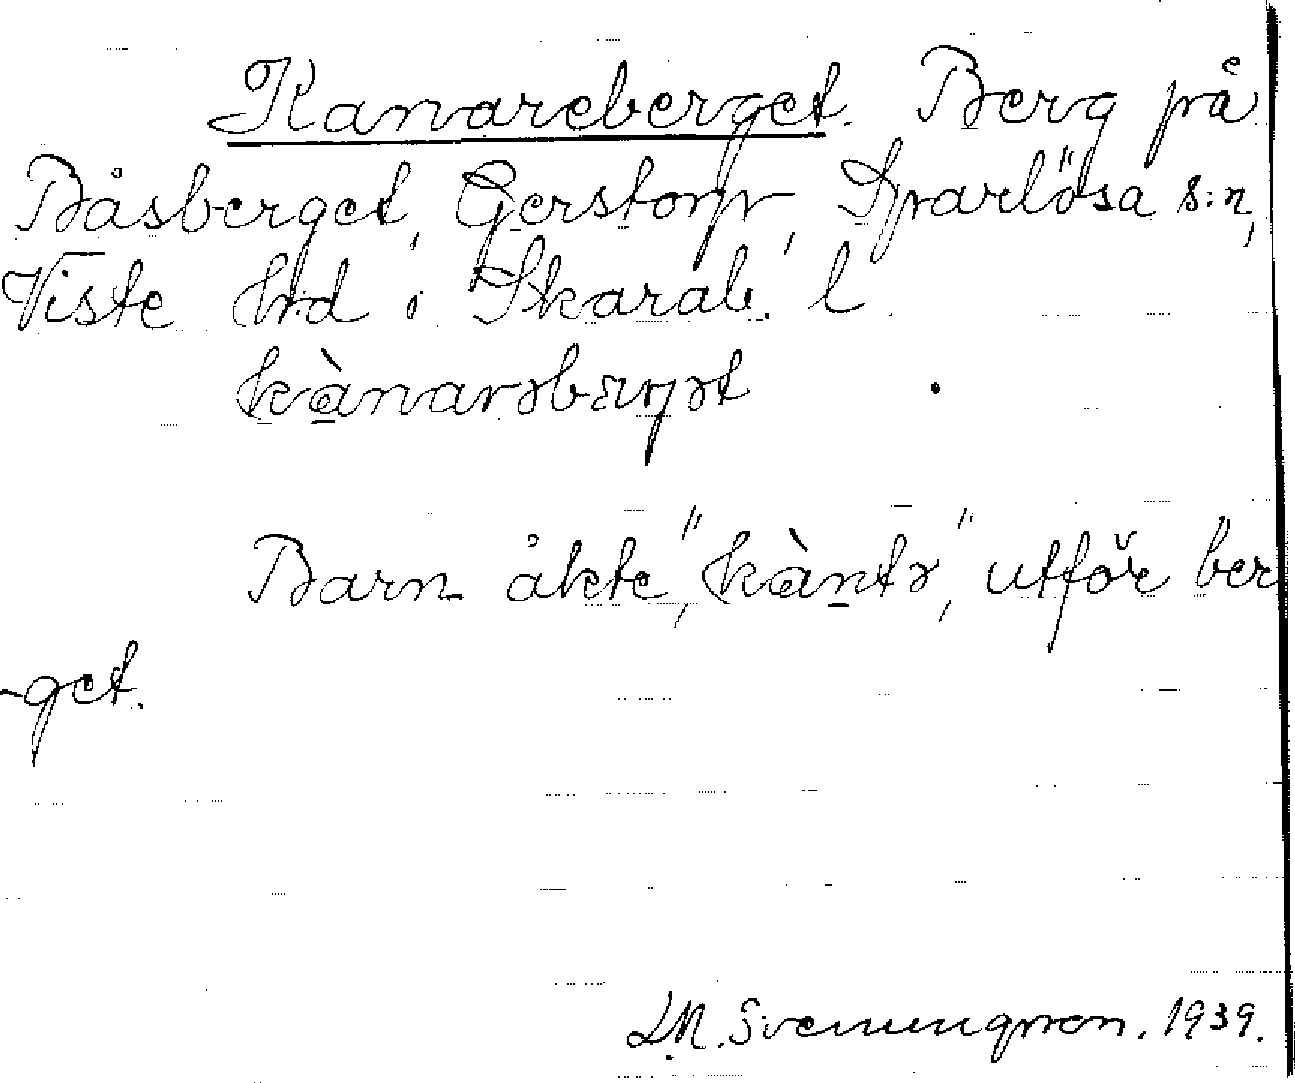 Kanareberget. Berg på
Båsberget, Gerstorp, Sparlösa s:n,
Viste hrd i Skarab. l.
kànarəbærjət
Barn åkte, "kàntə", utför ber
-get.
L.M. Svenungsson. 1939.